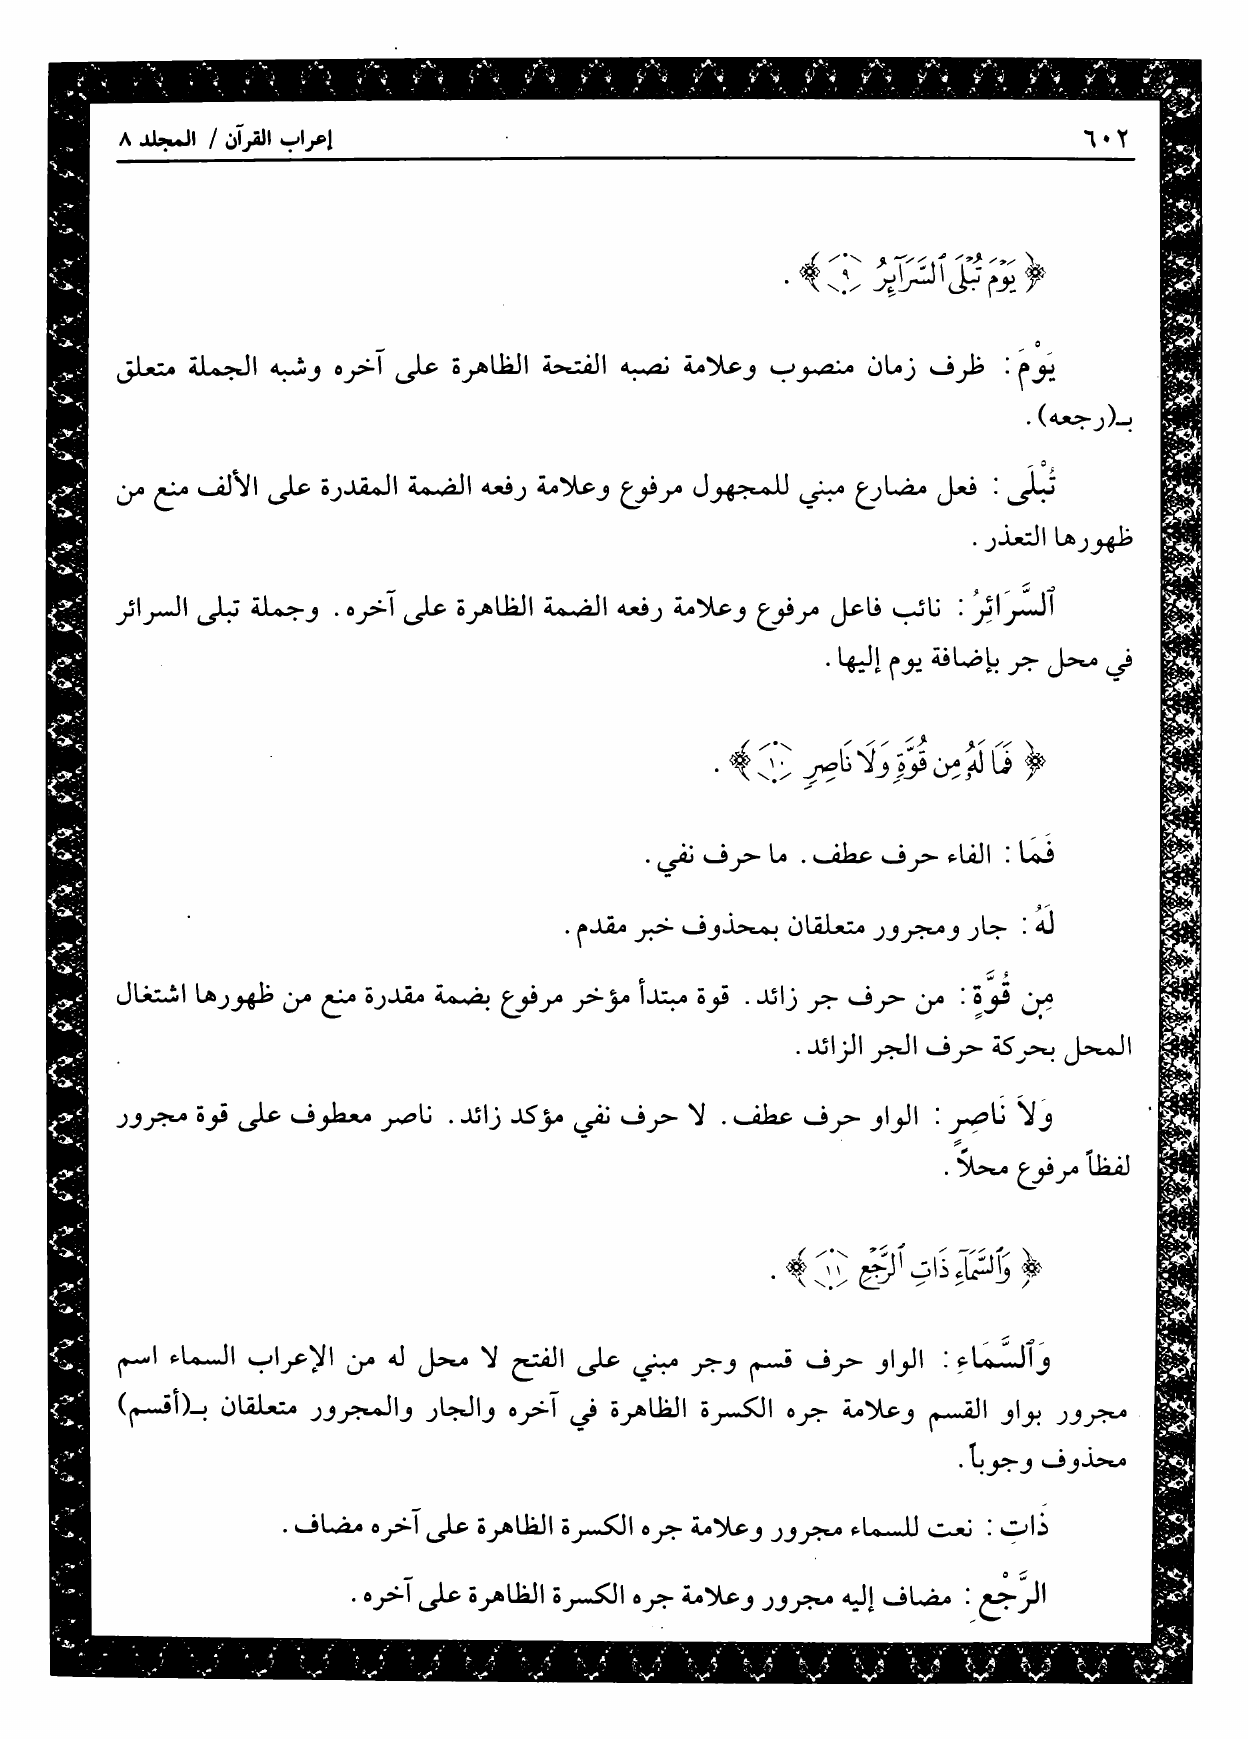 ٦٠٢
إعراب القرآن / المجلد ٨
﴿ يَوْمَ تُبْلَى ٱلسَّرَآئِرُ ٩ ﴾ .
يَوْمَ : ظرف زمان منصوب وعلامة نصبه الفتحة الظاهرة على آخره وشبه الجملة متعلق
بـ(رجعه) .
تُبْلَى : فعل مضارع مبني للمجهول مرفوع وعلامة رفعه الضمة المقدرة على الألف منع من
ظهورها التعذر .
ٱلسَّرَائِرُ : نائب فاعل مرفوع وعلامة رفعه الضمة الظاهرة على آخره . وجملة تبلى السرائر
في محل جر بإضافة يوم إليها .
﴿ فَمَا لَهُۥ مِن قُوَّةٍ وَلَا نَاصِرٍ ١٠ ﴾ .
فَمَا : الفاء حرف عطف . ما حرف نفي .
لَهُ : جار ومجرور متعلقان بمحذوف خبر مقدم .
مِن قُوَّةٍ : من حرف جر زائد . قوة مبتدأ مؤخر مرفوع بضمة مقدرة منع من ظهورها اشتغال
المحل بحركة حرف الجر الزائد .
وَلاَ نَاصِرٍ : الواو حرف عطف . لا حرف نفي مؤكد زائد . ناصر معطوف على قوة مجرور
لفظاً مرفوع محلاً .
﴿ وَٱلسَّمَآءِ ذَاتِ ٱلرَّجْعِ ١١ ﴾ .
وَٱلسَّمَاءِ : الواو حرف قسم وجر مبني على الفتح لا محل له من الإعراب السماء اسم
مجرور بواو القسم وعلامة جره الكسرة الظاهرة في آخره والجار والمجرور متعلقان بـ(أقسم)
محذوف وجوباً .
ذَاتِ : نعت للسماء مجرور وعلامة جره الكسرة الظاهرة على آخره مضاف .
الرَّجْعِ : مضاف إليه مجرور وعلامة جره الكسرة الظاهرة على آخره .